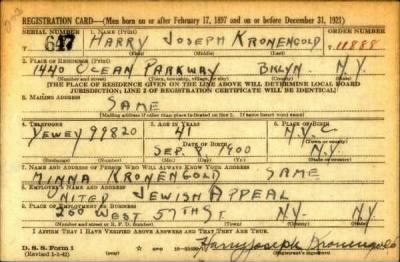 REGISTRATION CARD—(Men born on or after February 17, 1897 and on or before December 31, 1921)
SERIAL NUMBER 1. NAME (Print) ORDER NUMBER
647 HARRY JOSEPH KRONENGOLD 11888
(First) (Middle) (Last)
2. PLACE OF RESIDENCE (Print)
1440 OCEAN PARKWAY BKLYN. N.Y.
(Number and street) (Town, township, village, or city) (County) (State)
[THE PLACE OF RESIDENCE GIVEN ON THE LINE ABOVE WILL DETERMINE LOCAL BOARD
JURISDICTION; LINE 2 OF REGISTRATION CERTIFICATE WILL BE IDENTICAL]
3. MAILING ADDRESS
SAME
(Mailing address if other than place indicated on line 2. If same insert word same)
4. TELEPHONE 5. AGE IN YEARS 6. PLACE OF BIRTH
DEWEY 99820 41 N.Y.C
DATE OF BIRTH (Town or county)
SEP. 8 1900 N.Y.
(Exchange) (Number) (Mo.) (Day) (Yr.) (State or country)
7. NAME AND ADDRESS OF PERSON WHO WILL ALWAYS KNOW YOUR ADDRESS
MINNA KRONENGOLD SAME
8. EMPLOYER'S NAME AND ADDRESS
UNITED JEWISH APPEAL
9. PLACE OF EMPLOYMENT OR BUSINESS
250 WEST 57TH ST. N.Y. N.Y.
(Number and street or R. F. D. number) (Town) (County) (State)
I AFFIRM THAT I HAVE VERIFIED ABOVE ANSWERS AND THAT THEY ARE TRUE.
D. S. S. Form 1
(Revised 1-1-42) Harry Joseph Kronengold
(Registrant's signature)